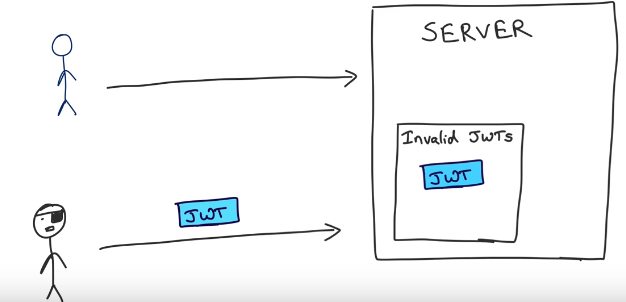 SERVER
Invalid JWTs
JWT
JWT